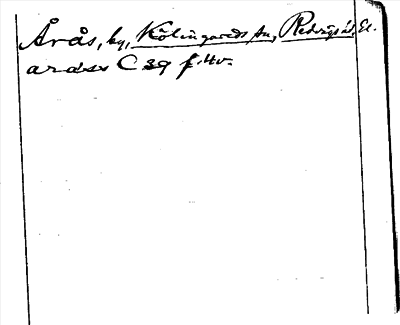 Årås, by, Kölingareds sn, Redvägs hd, Él.
aras C 39 f. 4 v.